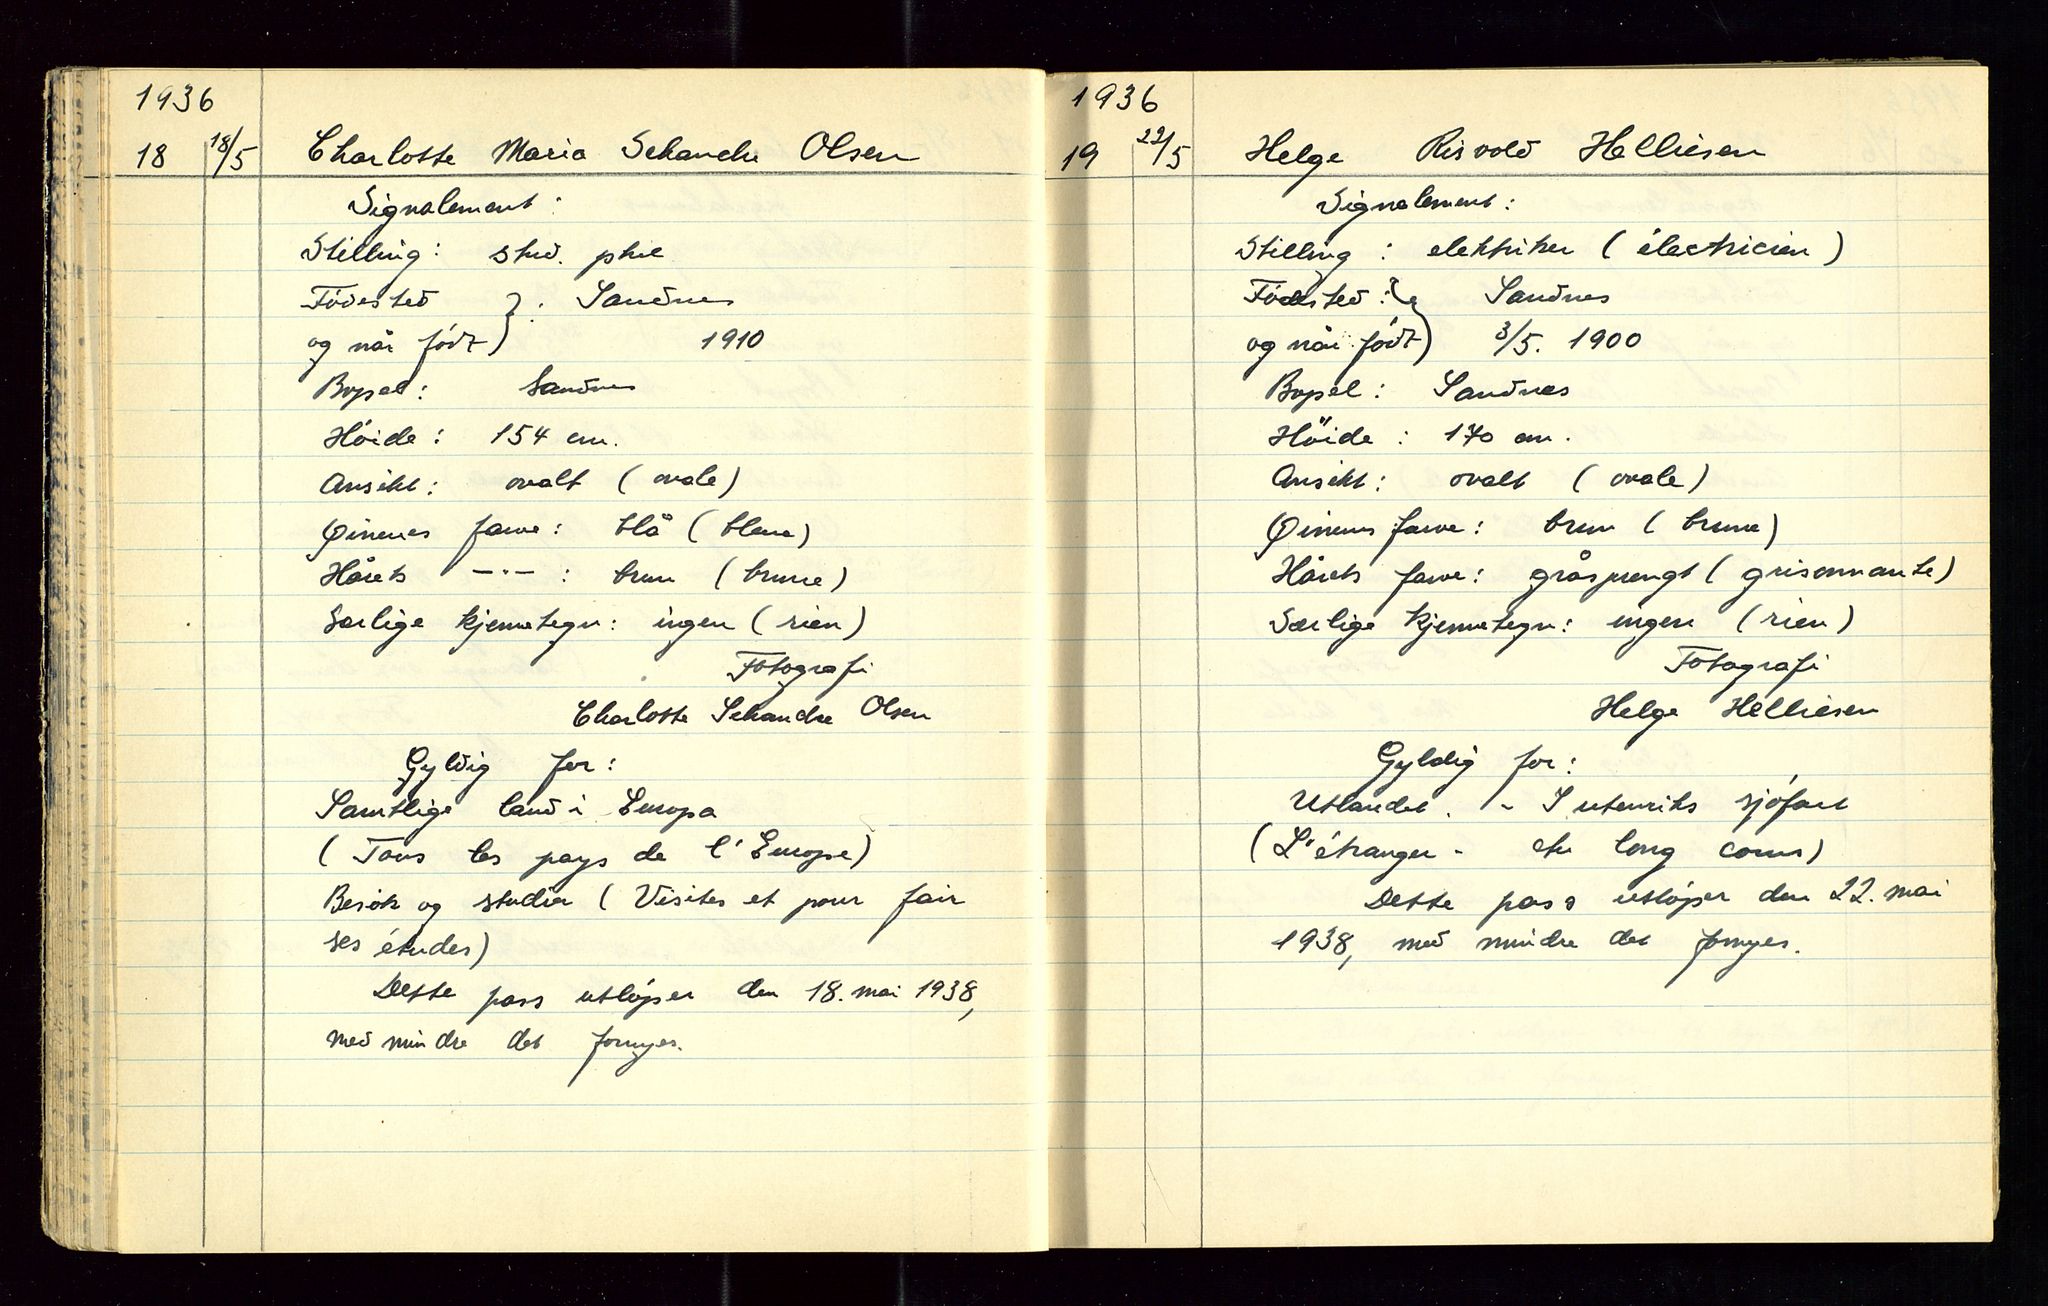 1936
18 18/5 Charlotte Maria Schanche Olsen
Signalement:
Stilling: stud. phil
Fødested } : Sandnes
og når født) 1910
Bopel: Sandnes
Høide: 154 cm.
Ansikt: ovalt (ovale)
Øinenes farve: blå (bleue)
Hårets —"— : brun (brune)
Særlige kjennetegn: ingen (rien)
Fotografi
Charlotte Schanche Olsen
Gyldig for:
Samtlige land i Europa
(Tous les pays de l'Europe)
Besøk og studier (Visites et pour fair
ses études)
Dette pass utløper den 18. mai 1938,
med mindre det fornyes.
1936
19 22/5 Helge Risvold Helliesen
Signalement:
Stilling: elektriker (électricien)
Fødested : } Sandnes
og når født) 3/5. 1900
Bopel: Sandnes
Høide: 170 cm.
Ansikt: ovalt (ovale)
Øinens farve: brun (brune)
Hårets farve: gråsprengt (grisonnante)
Særlige kjennetegn: ingen (rien)
Fotografi
Helge Helliesen
Gyldig for:
Utlandet. - I utenriks sjøfart
(L'étranger - au long cours)
Dette pass utløper den 22. mai
1938, med mindre det fornyes.